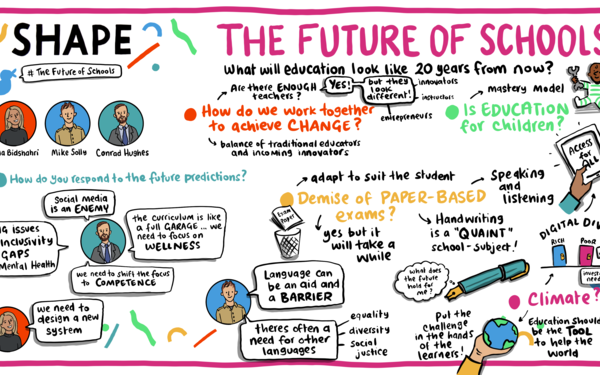 SHAPE
# The Future of Schools
Mike Solly
Conrad Hughes
THE FUTURE OF SCHOOLS
What will education look like 20 years from now?
Are there ENOUGH
teachers?
YES!
but they
look
different!
innovators
instructors
entrepreneurs
How do we work together
to achieve CHANGE?
balance of traditional educators
and incoming innovators
mastery model
Is EDUCATION
for children?
Access
for
ALL
How do you respond to the future predictions?
Social media
is an ENEMY
the curriculum is like
a full GARAGE ... we
need to focus on
WELLNESS
we need to shift the focus
to COMPETENCE
INCLUSIVITY
GAPS
Mental Health
we need to
design a new
system
adapt to suit the student
Demise of PAPER-BASED
exams?
Exam
Paper
yes but it
will take a
while
Speaking
and
listening
Handwriting
is a "QUAINT"
school-subject!
DIGITAL
RICH
POOR
Language can
be an aid and
a BARRIER
theres often a
need for other
languages
equality
diversity
social
justice
what does
the future
hold for
me?
Put the
challenge
in the hands
of the
learners!
Climate?
Education should
be the TOOL
to help the
world